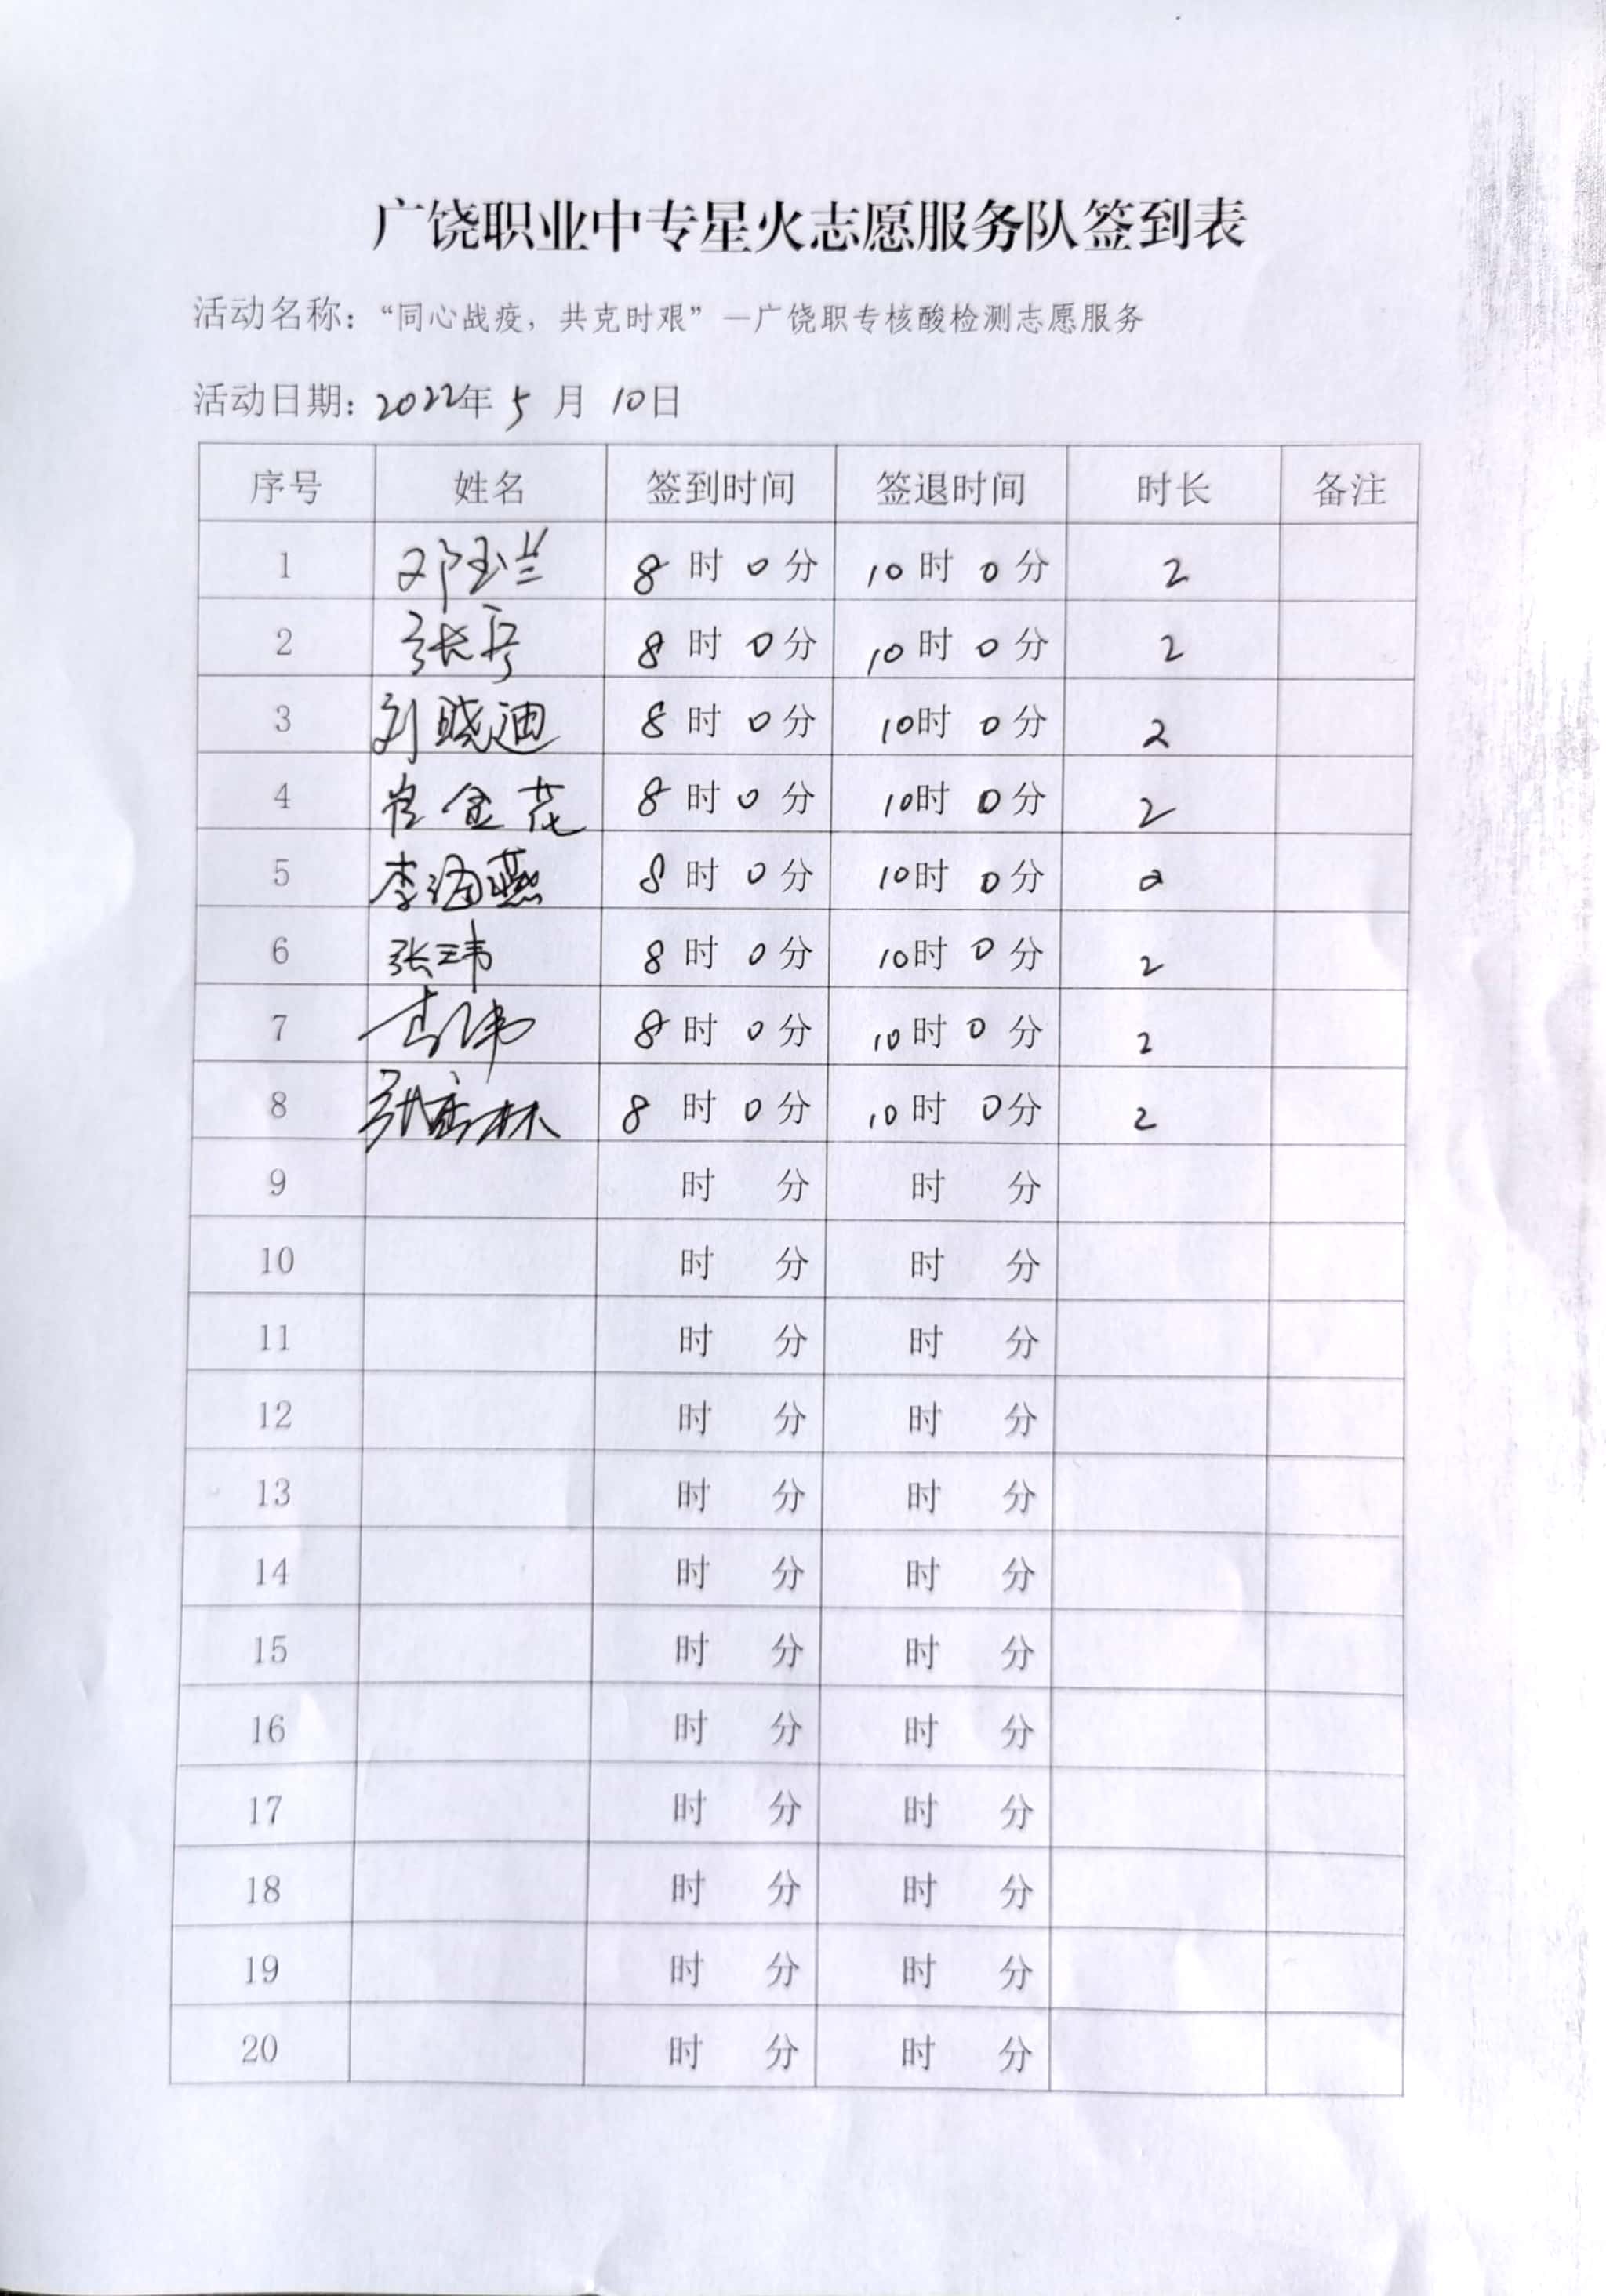 广饶职业中专星火志愿服务队签到表
活动名称：“同心战疫，共克时艰”—广饶职专核酸检测志愿服务
活动日期：2022年5月10日
序号 姓名 签到时间 签退时间 时长 备注
1 邓玉兰 8时0分 10时0分 2
2 8时0分 10时0分 2
3 刘晓迪 8时0分 10时0分 2
4 崔金花 8时0分 10时0分 2
5 李海燕 8时0分 10时0分 2
6 张玮 8时0分 10时0分 2
7 8时0分 10时0分 2
8 8时0分 10时0分 2
9 时 分 时 分
10 时 分 时 分
11 时 分 时 分
12 时 分 时 分
13 时 分 时 分
14 时 分 时 分
15 时 分 时 分
16 时 分 时 分
17 时 分 时 分
18 时 分 时 分
19 时 分 时 分
20 时 分 时 分